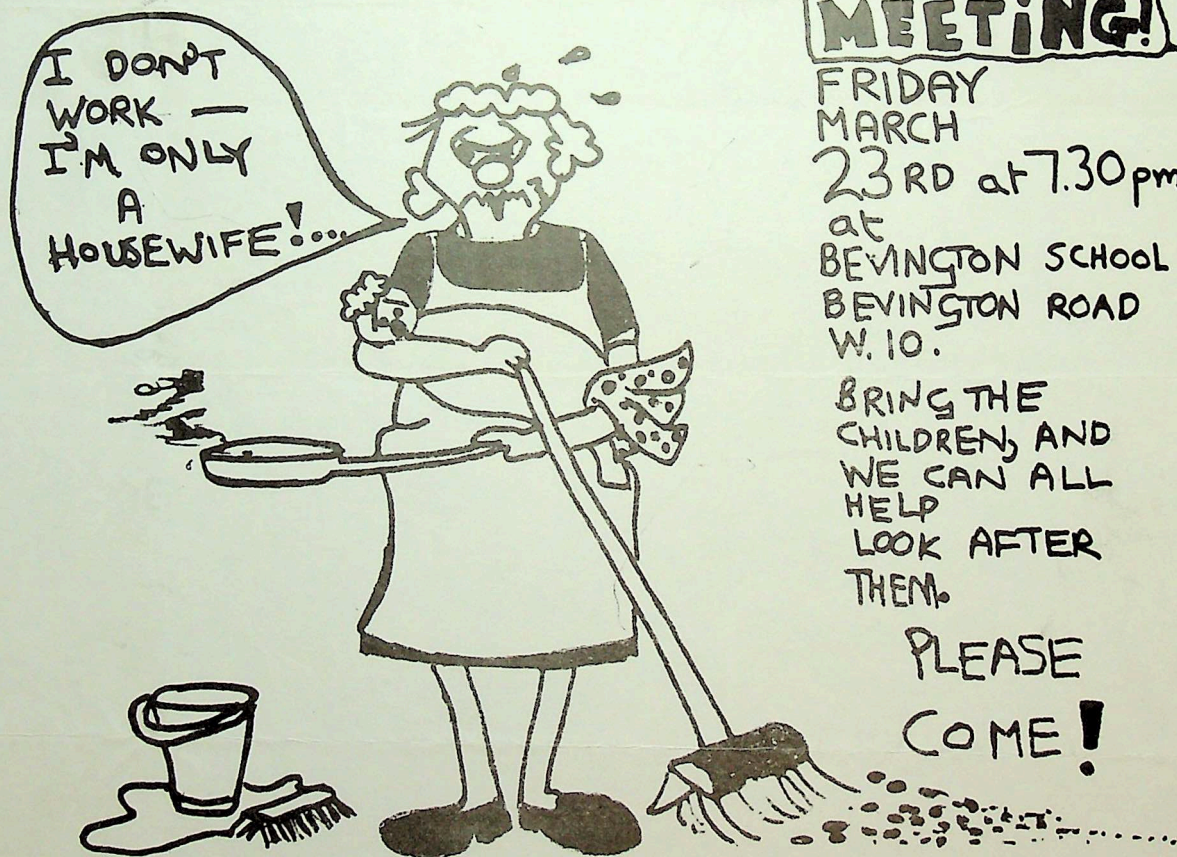 I DON'T
WORK —
I'M ONLY
A
HOUSEWIFE!...
MEETING!
FRIDAY
MARCH
23RD at 7.30pm
at
BEVINGTON SCHOOL
BEVINGTON ROAD
W.10.
BRING THE
CHILDREN, AND
WE CAN ALL
HELP
LOOK AFTER
THEM.
PLEASE
COME!